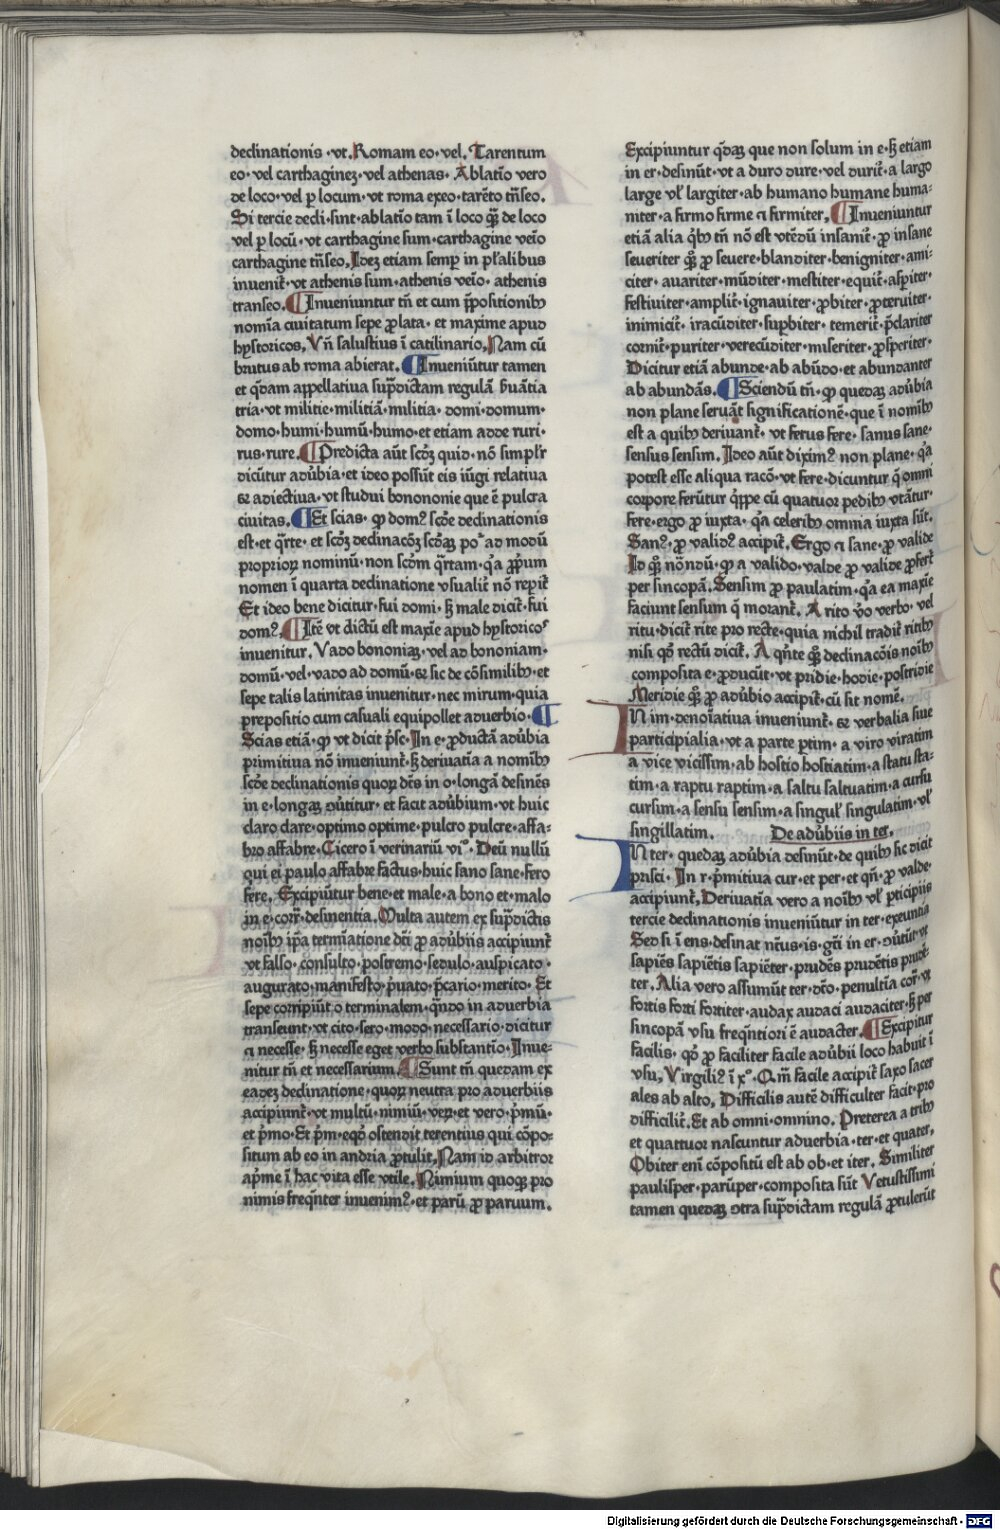 declinationis · vt. Romam eo · vel. Tarentum
eo · vel carthaginez · vel athenas · Ablatio vero
de loco · vel p locum · vt roma exeo · tarēto trāseo.
Si tercie decli · sint · ablatio tam ī loco qꝫ de loco
vel p locū · vt carthagine sum · carthagine veīo
carthagine trāseo. Idez etiam semp in plalibus
inuenit᷑ · vt athenis sum · athenis veīo · athenis
transeo. ¶ Inueniuntur tn̄ et cum p̄positionibꝰ
nomīa ciuitatum sepe ꝓlata · et maxime apud
hystoricos. Vn̄ salustius ī catilinario. Nam cū
brutus ab roma abierat. ¶ Inueniūtur tamen
et q̄dam appellatiua sup̄dictam regulā ẜuātia
tria · vt militie · militiā · militia · domi · domum ·
domo · humi · humū · humo · et etiam adde ruri ·
rus · rure. ¶ Predicta aūt scd̄z quid · nō simplr̄
dicūtur adūbia · et ideo possūt eis iūgi relatiua
⁊ adiectiua · vt studui bononie que ē pulcra
ciuitas. ¶ Et scias · ꝙ domꝰ scd̄e declinationis
est · et q̄rte · et scd̄z declinacōꝫ scd̄aꝫ poᵗ ad modū
proprioꝝ nominū · non scd̄m q̄rtam · qᷓ ꝓpium
nomen ī quarta declinatione vsualit᷑ nō repit᷑
Et ideo bene dicitur · fui domi · ẜꝫ male dicit᷑ · fui
domꝰ. ¶ Itē vt dictū est maxīe apud hystoricoˢ
inuenitur. Vado bononiaꝫ · vel ad bononiam ·
domū · vel · vado ad domū · ⁊ sic de cōsimilibꝰ · et
sepe talis latinitas inuenitur · nec mirum · quia
prepositio cum casuali equipollet aduerbio · ¶
Scias etiā · ꝙ vt dicit p̄sc · In e · ꝓductā adūbia
primitiua nō inueniunt᷑ · ẜꝫ deriuatia a nomībꝰ
scd̄e declinationis quoꝝ dt̄s in o · longā desinēs
in e · longaꝫ · ꝯūtitur · et facit adūbium · vt huic
claro clare · optimo optime · pulcro pulcre · affa-
bro affabre · Cicero ī verinariū vi° · Deū nullū
qui ei paulo affabre factus · huic sano sane · fero
fere. Excipiūtur bene · et male · a bono et · malo
in e · corr̄ · desinentia. Multa autem ex sup̄dictis
noībꝰ ip̄a termīatione dt̄i ꝓ adūbiis accipiunt᷑
vt falso · consulto · postremo · sedulo · auspicato ·
augurato · manifesto · p̄uato · p̄cario · merito · Et
sepe corripiūt o terminalem · qn̄do in aduerbia
transeunt · vt cito · sero · modo · necessario · dicitur
⁊ necesse · ẜꝫ necesse eget verbo substantio · Inue-
nitur tn̄ et necessarium. ¶ Sunt tn̄ quedam ex
eadeꝫ declinatione · quoꝝ neutra pro aduerbiis
accipiunt᷑ · vt multū · nimiū · veꝝ · et vero · p̄mū ·
et p̄mo · Et p̄m · eqd̄ ostendit terentius qui cōpo-
situm ab eo in andria ꝓtulit. Nam id arbitror
ap̄me ī hac vita esse vtile. Nimium quoqꝫ pro
nimis freqn̄ter inuenimꝰ · et parū ꝓ paruum.
Excipiuntur qd̄aꝫ que non solum in e · ẜꝫ etiam
in er · desinūt · vt a duro dure · vel durit᷑ · a largo
large vl̄ largiter · ab humano humane huma-
niter · a firmo firme ⁊ firmiter. ¶ Inueniuntur
etiā alia qͥbꝰ tn̄ nō est vtēdū insanit᷑ · ꝓ insane
seueriter qꝫ ꝓ seuere · blanditer · benigniter · ami-
citer · auariter · mūditer · mestiter · equit᷑ · asp̄iter ·
festiuiter · amplit᷑ · ignauiter · ꝓbiter · ꝓteruiter ·
inimicit᷑ · iracūditer · sup̄biter · temerit᷑ · p̄clariter
cornit᷑ · puriter · verecūditer · miseriter · ꝓsperiter ·
Dicitur etiā abunde · ab abūdo · et abundanter
ab abundās. ¶ Sciendū tn̄ · ꝙ quedaꝫ adūbia
non plane seruāt significationē · que ī nomībꝰ
est a quibꝰ deriuant᷑ · vt ferus fere · sanus sane ·
sensus sensim. Ideo aūt diximꝰ non plane · qᷓ
potest esse aliqua racō · vt fere · dicuntur q̄ omni
corpore ferūtur qͥppe cū quatuor pedibꝰ vtātur ·
fere · ergo ꝓ iuxta · qᷓ celeribꝰ omnia iuxta sūt.
Sanꝰ · ꝓ validꝰ accipit᷑. Ergo ⁊ sane · ꝓ valide
Id qꝫ nō n̄dū · ꝙ a valido · valde ꝓ valide ꝓfert᷑
per sincopā. Sensim ꝓ paulatim · qᷓ ea maxīe
faciunt sensum q̄ morant᷑. A rito v̄o verbo · vel
ritu · dicit᷑ rite pro recte · quia nichil tradit᷑ ritibꝰ
nisi qd̄ rectū dicit᷑. A qn̄te qꝫ declinacōis noībꝰ
composita e · ꝓducūt · vt pridie · hodie · postridie
Meridie qꝫ ꝓ adūbio accipit᷑ · cū sit nomē.
In im · denoīatiua inueniunt᷑ · ⁊ verbalia siue
participialia · vt a parte p̄tim · a viro viratim
a vice vicissim · ab hostio hostiatim · a statu sta-
tim · a raptu raptim · a saltu saltuatim · a cursu
cursim · a sensu sensim · a singul᷑ singulatim · vl̄
singillatim. De adūbiis in ter.
In ter · quedaꝫ adūbia desinūt · de quibꝰ sic dicit
prisci · In r · p̄mitiua cur · et per · et qn̄ · ꝓ valde ·
accipiunt᷑. Deriuatia vero a noībꝰ vl̄ p̄ticipiis
tercie declinationis inueniūtur in ter · exeuntia
Sed si ī ens · desinat nt̄us · is · gt̄i in er · ꝯūtūt᷑ vt
sapiēs sapiētis sapiēter · prudēs prudētis prudēt᷑
ter. Alia vero assumūt ter · dt̄o · penultia cor̄ · vt
fortis forti fortiter · audax audaci audaciter · ẜꝫ per
sincopā vsu freqn̄tiori ē audacter. ¶ Excipitur
facilis · qd̄ ꝓ faciliter facile adūbii loco habuit ī
vsu. Virgiliꝰ ī x° · Qm̄ facile accipit᷑ saxo sacer
ales ab alto. Difficilis autē difficulter facit · pro
difficilit᷑. Et ab omni · omnino. Preterea a tribꝰ
et quattuor nascuntur aduerbia · ter · et quater.
Obiter enī cōpositū est ab ob · et iter. Similiter
paulisper · parūper · composita sūt Vetustissimi
tamen quedaꝫ ꝯtra sup̄dictam regulā ꝓtulerūt
Digitalisierung gefördert durch die Deutsche Forschungsgemeinschaft - DFG